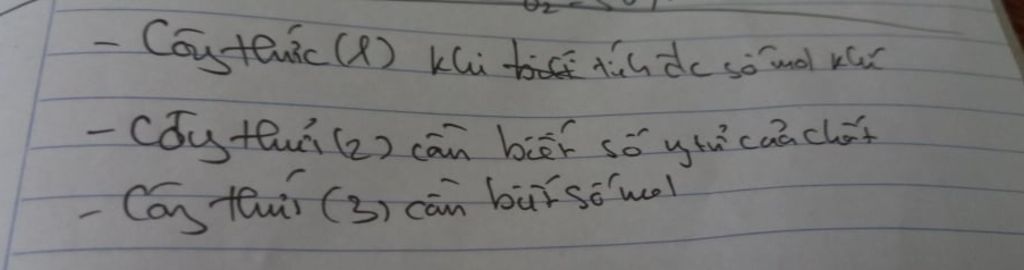 - Công thức (1) khi biết tính đc số mol khí
- Công thức (2) cần biết số ytử của chất
- Công thức (3) cần biết số mol